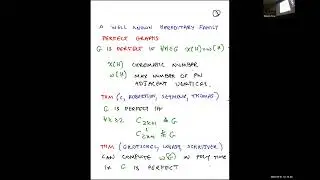 A WELL KNOWN HEREDITARY FAMILY
PERFECT GRAPHS
G IS PERFECT IF ∀H⊆G χ(H)=ω(H)
χ(H) CHROMATIC NUMBER
ω(H) MAX NUMBER OF PW
ADJACENT VERTICES.
THM (C, ROBERTSON, SEYMOUR, THOMAS)
G IS PERFECT IFF
∀k≥2 C2k+1 ⊄ G
C2k+1 ⊄ G
THM (GROTSCHEL, LOVASZ, SCHRIJVER)
CAN COMPUTE ω(G) IN POLY TIME
IF G IS PERFECT